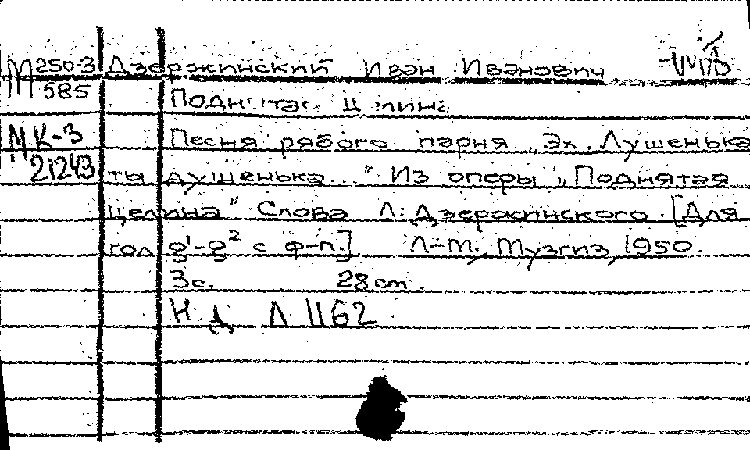 М 250-3 Дзержинский Иван Иванович
585 Поднятая целина
М К-3 Песня рябого парня „Эх, Лушенька
21243 ты душенька..." Из оперы „Поднятая
целина" Слова Л. Дзержинского. [Для
гол g¹-g² с ф-п.] Л-М., Музгиз, 1950.
3 с. 28 cm.
Н Д Л 1162